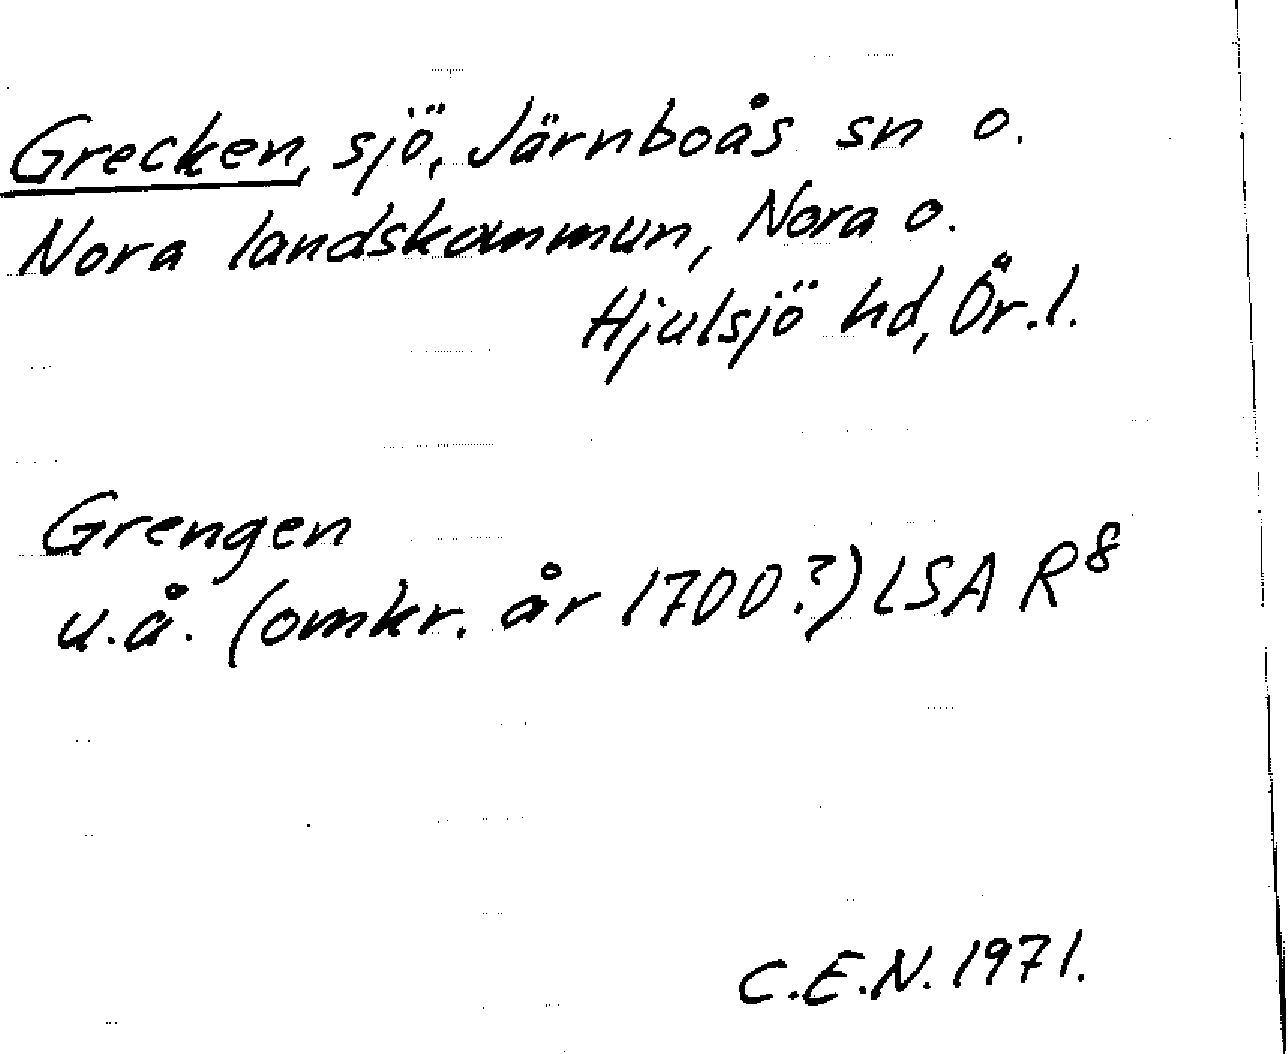 Grecken, sjö, Järnboås sn o.
Nora landskommun, Nora o.
Hjulsjö hd, Ör.l.
Grengen
u.å. (omkr. år 1700?) LSA R⁸
C.E.N. 1971.